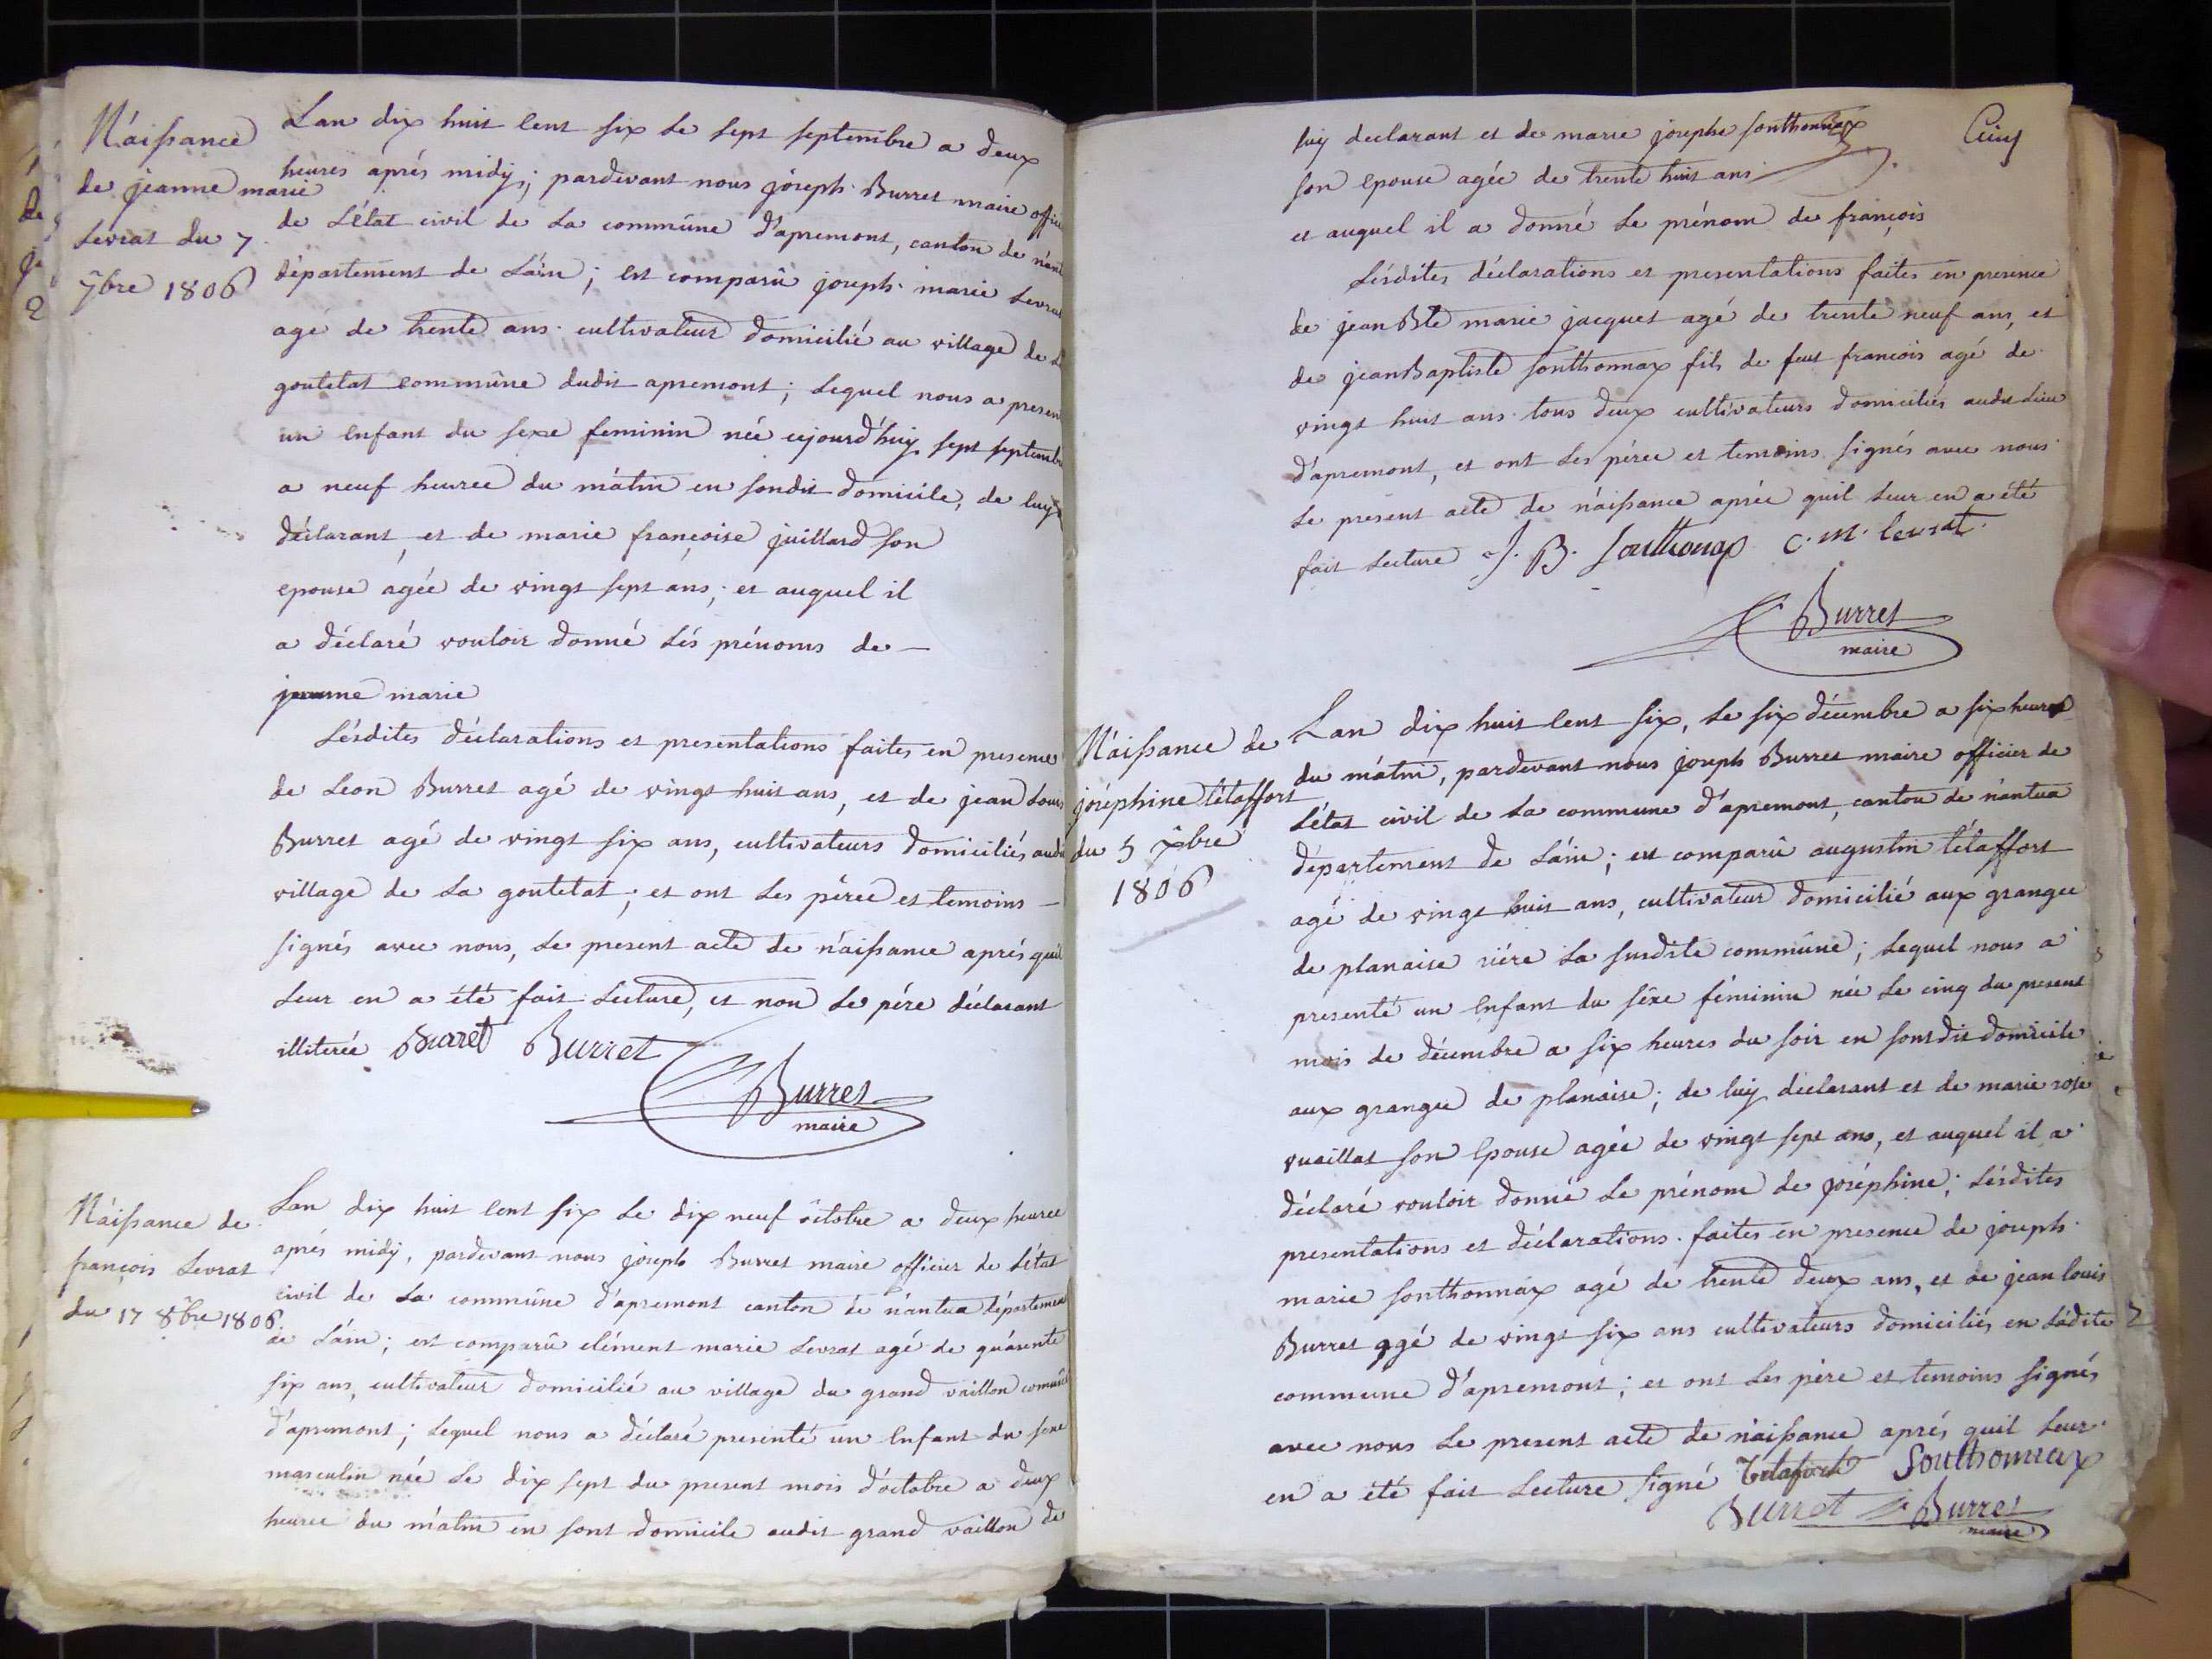 Náissance
de jeanne marie
Levrat du 7
7bre 1806
Lan dix huit cent six le sept septembre a deux
heures aprés midy; pardevant nous joseph Burret maire offici
de L'état civil de la commûne d'apremont, canton de nant
département de Láin; est comparû joseph marie Levrat
agé de trente ans cultivateur domicilié au village de L
goutelat commûne dudit apremont; Lequel nous a presen
un enfant du sexe feminin née cejourd'huy sept septembre
a neuf heures du mátin en sondit domicile, de luy
déclarant, et de marie françoise juillard son
epouse ágée de vingt sept ans; et auquel il
a déclaré vouloir donné Lés prénoms de —
jeanne marie
Lésdites déclarations et presentations faites en presence
de Leon Burret agé de vingt huit ans, et de jean Louis
Burret agé de vingt six ans, cultivateurs domiciliés audi
village de La goutelat; et ont Les péres et temoins —
signés avec nous, Le present acte de náissance aprés quil
Leur en a été fait Lecture, et non Le pére déclarant
illiterée Burret Burret
Burret
maire
Náissance de
françois Levrat
du 17 8bre 1806.
Lan dix huit cent six Le dix neuf óctobre a deux heures
aprés midy, pardevant nous joseph Burret maire officier de L'état
civil de La commûne d'apremont canton de nántua départemen
de Láin; est comparû clément marie Levrat agé de quárente
six ans, cultivateur domicilié au village du grand vaillon comûne
d'apremont; Lequel nous a déclaré presenté un Enfant du sexe
masculin née Le dix sept du present mois d'óctobre a deux
heures du mátin en sont domicile audit grand vaillon de
Cinq
luy declarant et de marie josephe sonthonnax
son epouse agée de trente huit ans
et auquel il a donné Le prénom de françois
Lésdites déclarations et presentations faites en presence
de jean Bte marie jacquet agé de trente neuf ans, et
de jean Baptiste sonthonnax fils de feut francois agé de
vingt huit ans tous deux cultivateurs domiciliés audit Lieu
d'apremont, et ont Les péres et temoins signés avec nous
Le present acte de náissance aprés quil Leur en a été
fait Lecture J. B. Sonthonax C. M. Levrat.
Burret
maire
Náissance de
joséphine tétaffort
du 5 xbre
1806
Lan dix huit cent six, Le six décembre a six heures
du mátin, pardevant nous joseph Burret maire officier de
L'état civil de La commune d'apremont, canton de nántua
département de Láin; est comparû augustin tétaffort
agé de vingt huit ans, cultivateur domicilié aux granges
de planaise riére La susdite commûne; Lequel nous a
presenté un Enfant du séxe féminin née Le cinq du present
mois de décembre a six heures du soir en sondit domicile
aux granges de planaise; de luy déclarant et de marie rose
vuaillat son Epouse agée de vingt sept ans, et auquel il a
déclaré vouloir donné Le prénom de joséphine; Lésdites
presentations et déclarations faites en presence de joseph
marie sonthonnáx agé de trente deux ans, et de jean louis
Burret agé de vingt six ans cultivateurs domiciliés en Ládite
commune d'apremont; et ont Les pére et temoins signés
avec nous Le present acte de náissance aprés quil Leur
en a été fait Lecture signé Tetafort Sonthonnax
Burret Burret
maire